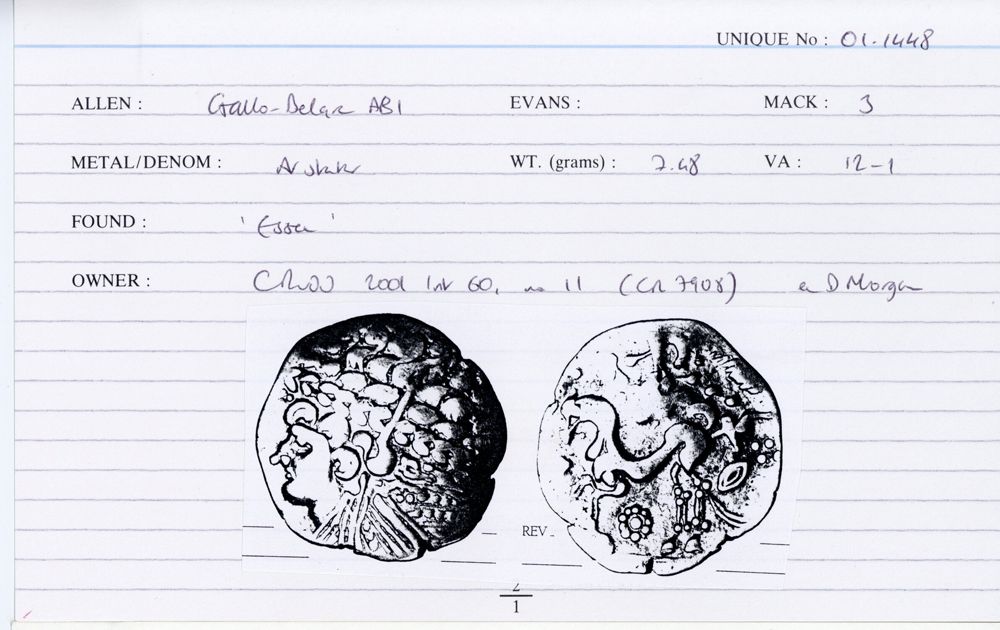 UNIQUE No : 01.1448
ALLEN : Gallo-Belgic AB1 EVANS : MACK : 3
METAL/DENOM : AV stater WT. (grams) : 7.48 VA : 12-1
FOUND : 'Essex'
OWNER : 2001 60, no 11 (CR 7908) ex D Morgan
REV
2
1